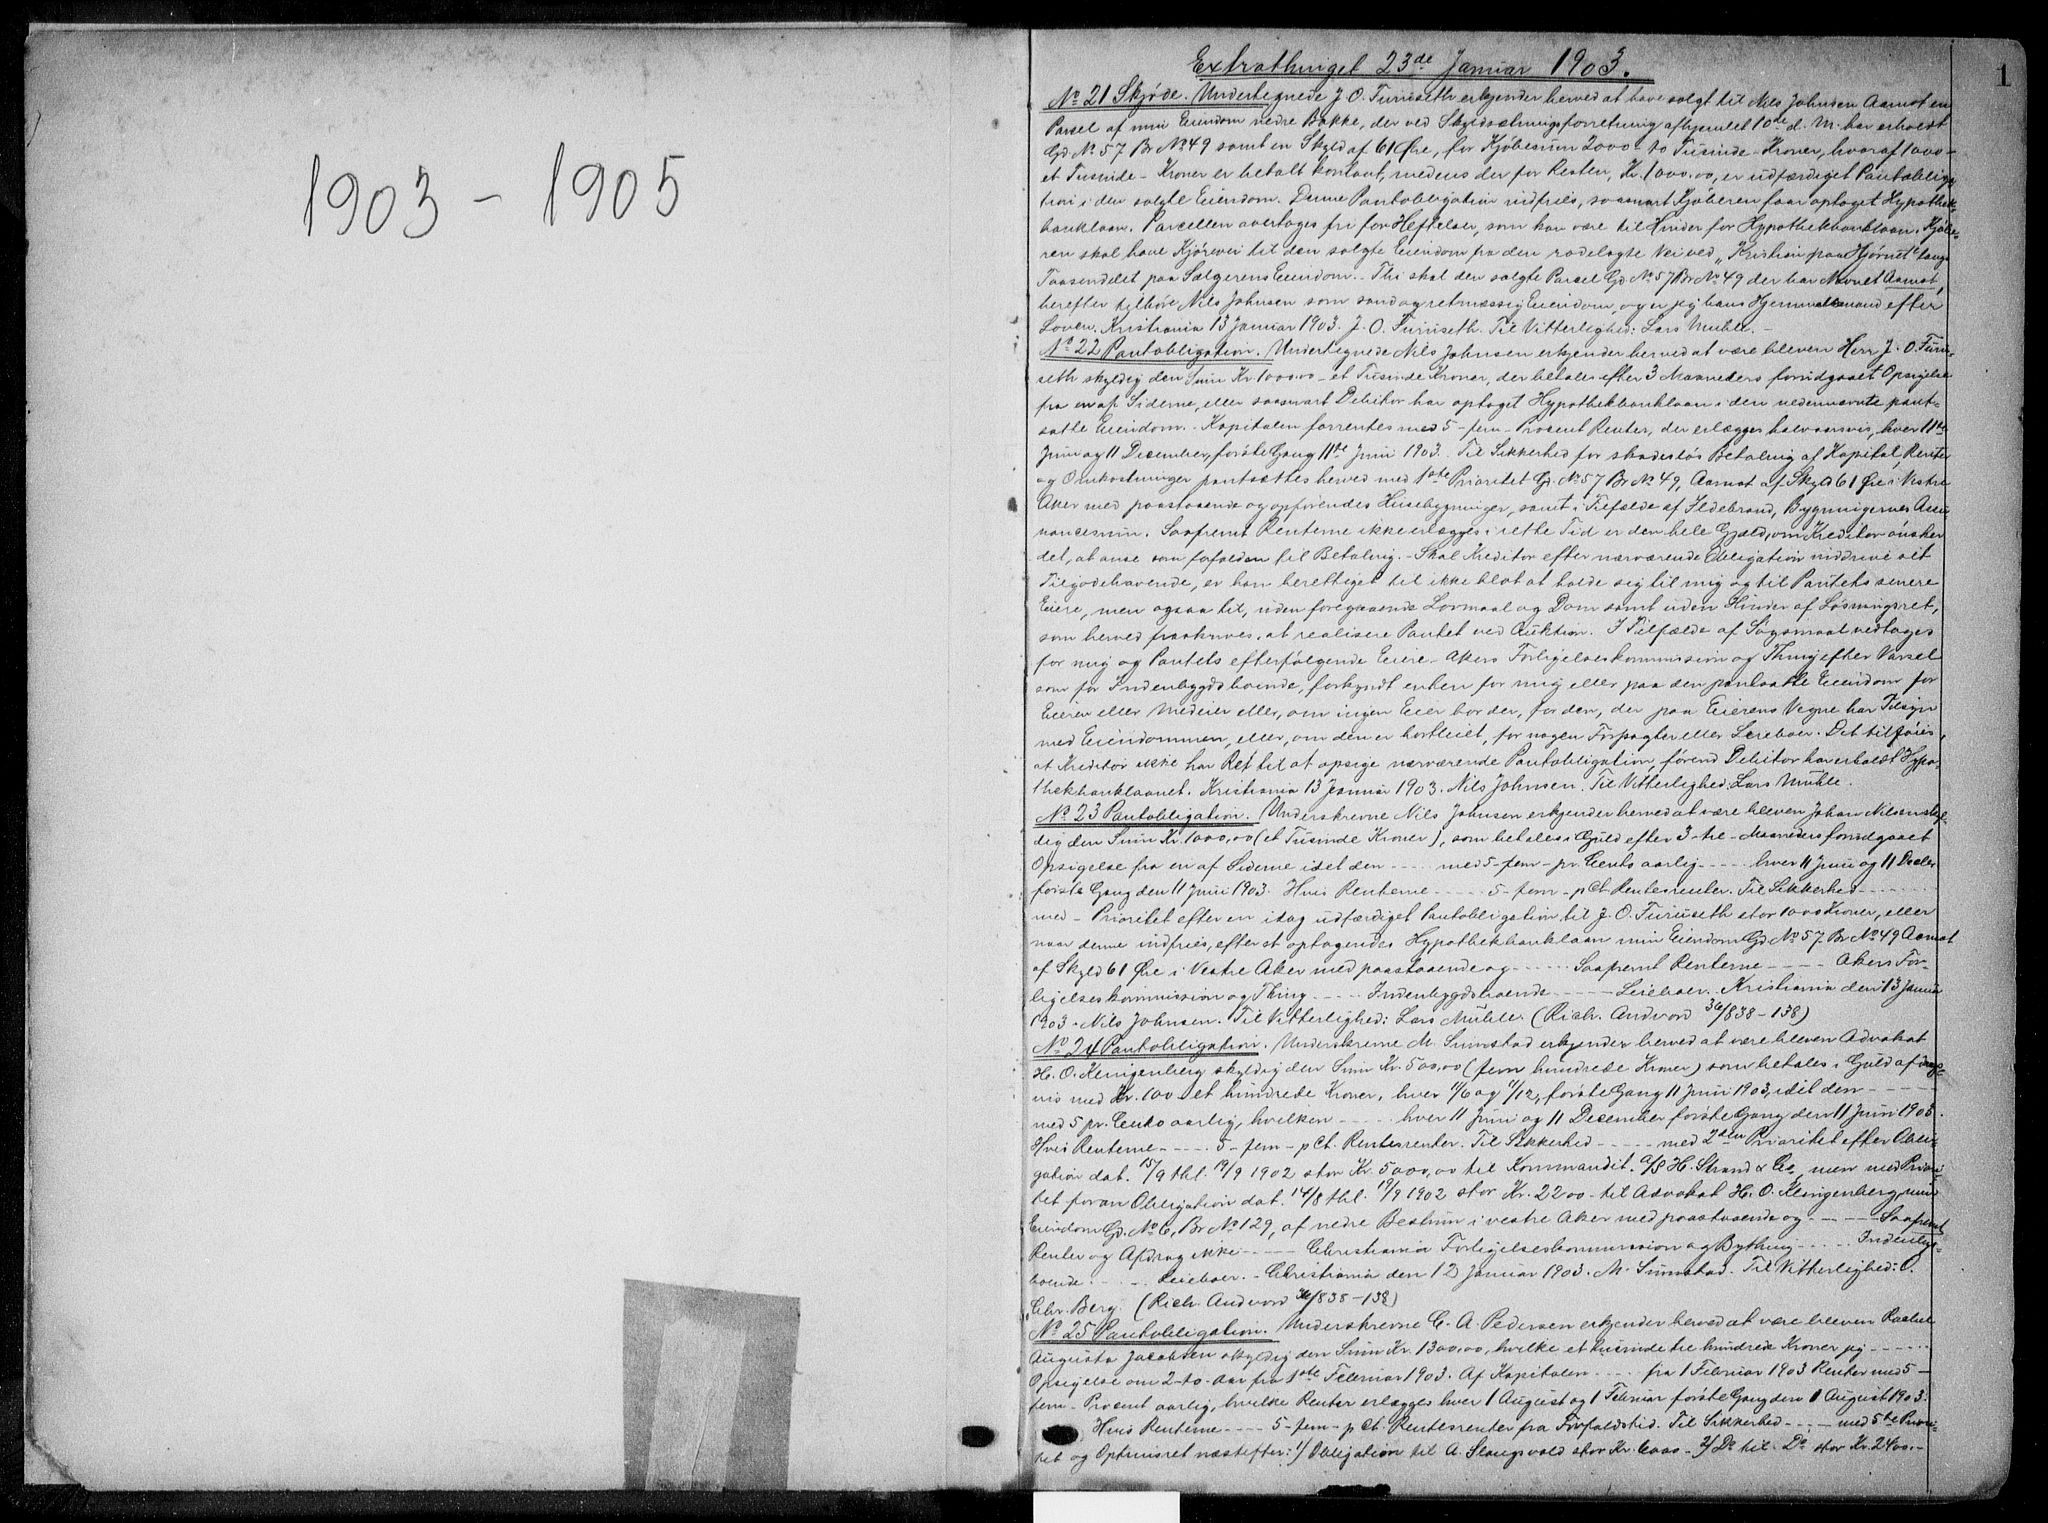 1903 - 1905
1
Extrathinget 23de Januar 1903.
No 21 Skjøde. Undertegnede J. O. Furuseth erkjender herved at have solgt til Nils Johnsen Aamot en
Parsel af min Eiendom nedre Bakke, der ved Skyldsætningsforretning afhjemlet 10de d. M. har erholdt
Gd No 57 Br No 49 samt en Skyld af 61 Øre, for Kjøbesum 2000 - to Tusinde - Kroner, hvoraf 1000 -
et Tusinde - Kroner er betalt kontant, medens der for Resten, Kr. 1000.00, er udfærdiget Pantobliga-
tion i den solgte Eiendom. Denne Pantobligation indfries, saasnart Kjøberen faar optaget Hypothek-
banklaan. Parcellen overtages fri for Heftelser, som kan være til Hinder for Hypothekbanklaan. Kjøbe-
ren skal have Kjørevei til den solgte Eiendom fra den rodelagte Vei ved "Kristian paa Hjørnet" langs
Taasendelet paa Sælgerens Eiendom. - Thi skal den solgte Parsel Gd No 57 Br No 49 der har Navnet Aamot,
herefter tilhøre Nils Johnsen som sand og retmæssig Eiendom, og er jeg hans Hjemmelsmand efter
Loven. Kristiania 13 Januar 1903. J. O. Furuseth. Til Vitterlighed: Lars Muhle. -
No 22 Pantobligation. Undertegnede Nils Johnsen erkjender herved at være bleven Herr J. O. Furu-
seth skyldig den Sum Kr. 1000.00 - et Tusinde Kroner, der betales efter 3 Maaneders forudgaaet Opsigelse
fra en af Siderne, eller saasnart Debitor har optaget Hypothekbanklaan i den nedennævnte pant-
satte Eiendom. - Kapitalen forrentes med 5 - fem - Procent Renter, der erlægges halvaarsvis, hver 11te
Juni og 11 December, første Gang 11te Juni 1903. Til Sikkerhed for skadesløs Betaling af Kapital, Renter
og Omkostninger pantsættes herved med 1ste Prioritet Gd. No 57 Br No 49, Aamot af Skyld 61 Øre i Vestre
Aker med paastaaende og opførendes Husebygninger, samt i Tilfælde af Ildebrand, Bygningernes Assu-
rancesum. Saafremt Renterne ikke erlægges i rette Tid er den hele Gjæld, om Kreditor ønsker
det, at anse som forfalden til Betaling. - Skal Kreditor efter nærværende Obligation inddrive sit
Tilgodehavende, er han berettiget til ikke blot at holde sig til mig og til Pantets senere
Eiere, men ogsaa til, uden foregaaende Lovmaal og Dom samt uden Hinder af Løsningsret,
som herved fraskrives, at realisere Pantet ved Auktion. I Tilfælde af Søgsmaal vedtages
for mig og Pantets efterfølgende Eiere - Akers Forligelseskommission og Thing efter Varsel
som for Indenbygdsboende, forkyndt enten for mig eller paa den pantsatte Eiendom for
Eieren eller Medeier eller, om ingen Eier bor der, for den, der paa Eierens Vegne har Tilsyn
med Eiendommen, eller, om den er bortleiet, for nogen Forpagter eller Leieboer. Det tilføies,
at Kreditor ikke har Ret til at opsige nærværende Pantobligation, førend Debitor har erholdt Hypo-
thekbanklaanet. Kristiania 13 Januar 1903. Nils Johnsen. Til Vitterlighed: Lars Muhle.
No 23 Pantobligation. Underskrevne Nils Johnsen erkjender herved at være bleven Johan Nilsen skyl-
dig den Sum Kr. 1000,00 (et Tusinde Kroner), som betales i Guld efter 3 - tre - Maaneders forudgaaet
Opsigelse fra en af Siderne idet den ---- med 5 - fem - pr. Cents aarlig ---- hver 11 Juni og 11 Decbr
første Gang den 11 Juni 1903. Hvis Renterne ---- 5 - fem - pCt. Rentesrenter. Til Sikkerhed ------
med - Prioritet efter en idag udfærdiget Pantobligation til J. O. Furuseth stor 1000 Kroner, eller
naar denne indfries, efter et optagendes Hypothekbanklaan min Eiendom Gd No 57 Br No 49 Aamot
af Skyld 61 Øre i Vestre Aker med paastaaende og ----- Saafremt Renterne ---- Akers For-
ligelseskommission og Thing ---- Indenbygdsboende ---- Leieboer. Kristiania den 13 Januar
1903. Nils Johnsen. Til Vitterlighed: Lars Muhle. (Rich. Andvord 36/838 - 138)
No 24 Pantobligation. Underskrevne M. Sunstad erkjender herved at være bleven Advokat
H. O. Klingenberg skyldig den Sum Kr. 500,00 (fem hundrede Kroner) som betales i Guld afdrags-
vis med Kr. 100 - et hundrede Kroner, hver 11/6 og 11/12, første Gang 11 Juni 1903, idet den -----
med 5 pr. Cents aarlig, hvilken ---- hver 11 Juni og 11 December første Gang den 11 Juni 1903.
Hvis Renterne ---- 5 - fem - pCt. Rentesrenter. Til Sikkerhed ----- med 2den Prioritet efter Obli-
gation dat. 15/9 thl. 19/9 1902 stor Kr. 5000,00 til Kommandit. A/S H. Strand & Co, men med Priori-
tet foran Obligation dat. 14/8 thl. 19/9 1902 stor Kr. 2200 - til Advokat H. O. Klingenberg, min
Eiendom Gd. No 6, Br No 129, af nedre Bestum i vestre Aker med paastaaende og ---- Saafremt
Renter og Afdrag ikke ---- Christiania Forligelseskommission og Bything ---- Indenbys-
boende ---- Leieboer. - Christiania den 12 Januar 1903. M. Sunstad. Til Vitterlighed: O.
Chr. Berg. (Rich. Andvord 36/838 - 138)
No 25 Pantobligation. Underskrevne C. A. Pedersen erkjender herved at være bleven Rachel
Augusta Jacobsen skyldig den Sum Kr. 1300,00, hvilke et tusinde tre hundrede Kroner jeg -----
Opsigelse om 2 - to - Aar fra 1ste Februar 1903. Af Kapitalen ---- fra 1 Februar 1903 Renter med 5 -
fem - Procent aarlig, hvilke Renter erlægges hver 1 August og 1 Februar første Gang den 1 August 1903.
Hvis Renterne ---- 5 - fem - pCt. Rentesrenter fra Forfaldstid. Til Sikkerhed ---- med 5te Priori-
tet og Optrinsret næstefter: 1/ Obligation til A. Slangsvold stor Kr. 6000 - 2/ Do til Do stor Kr. 2400. -